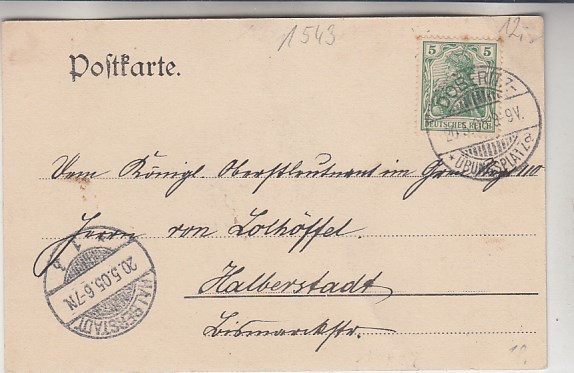 1543
12,-
Postkarte.
5 5
DEUTSCHES REICH
DÖBERITZ
9V.
ÜBUNGSPLATZ
Königl. Oberstleutnant im
Herrn von Lolhöffel
Halberstadt
Bismarckstr.
HALBERSTADT
20.5.05.6-7N
1